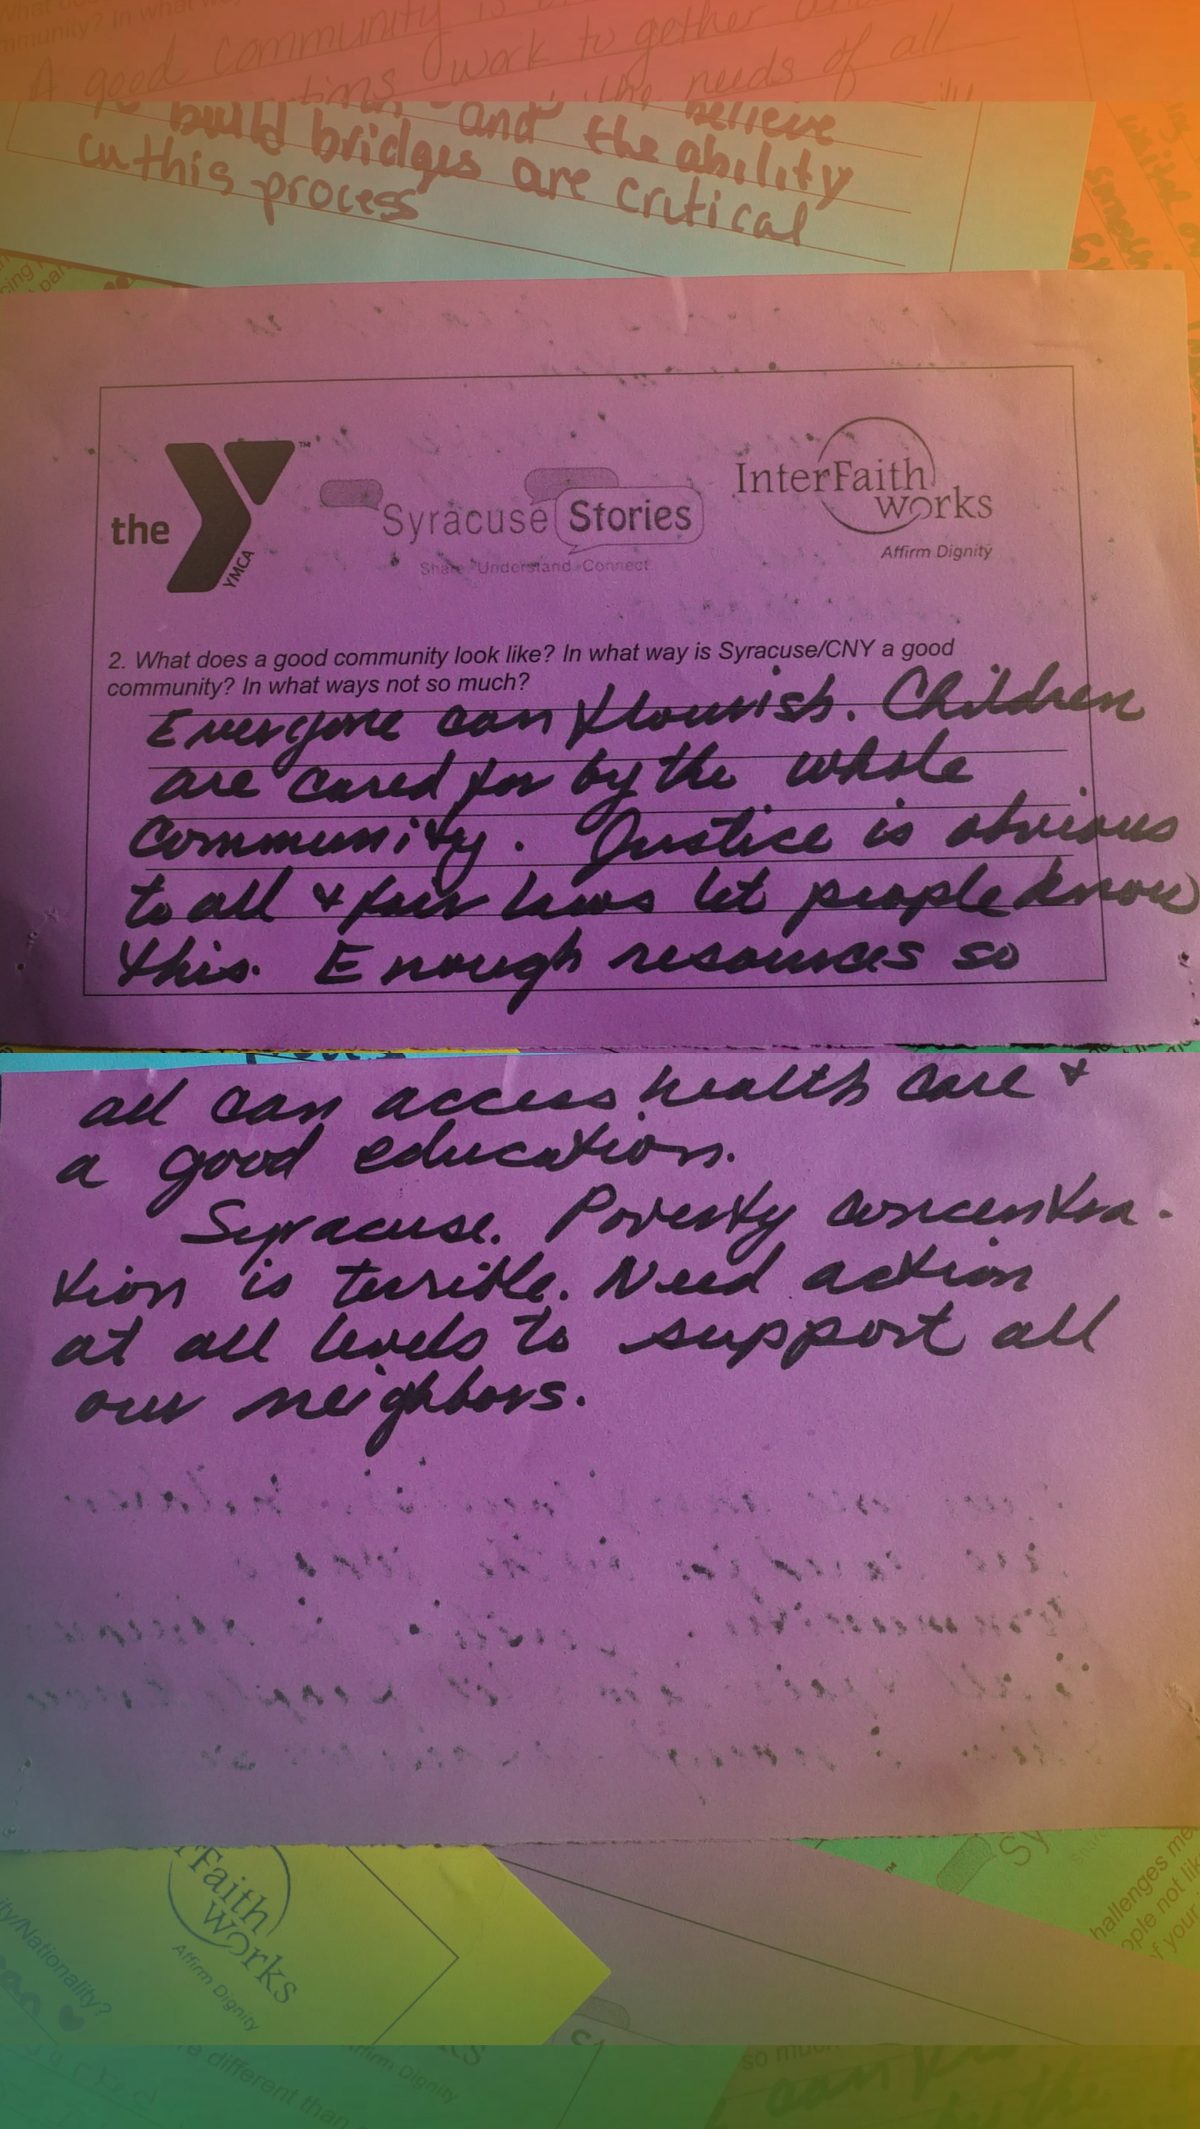 A good community is
work together
the needs of all
believe
build bridges and the ability
in this process are critical
the Y YMCA ™
Syracuse Stories
Share Understand Connect
InterFaith works
Affirm Dignity
2. What does a good community look like? In what way is Syracuse/CNY a good
community? In what ways not so much?
Everyone can flourish. Children
are cared for by the whole
community. Justice is obvious
to all & fair laws let people know
this. Enough resources so
all can access health care &
a good education.
Syracuse. Poverty concentra-
tion is terrible. Need action
at all levels to support all
our neighbors.
Faith
works
Affirm Dignity
ty/Nationality?
hallenges me
ople not lik
f your
e different than
ffirm Dignity
so much
by the